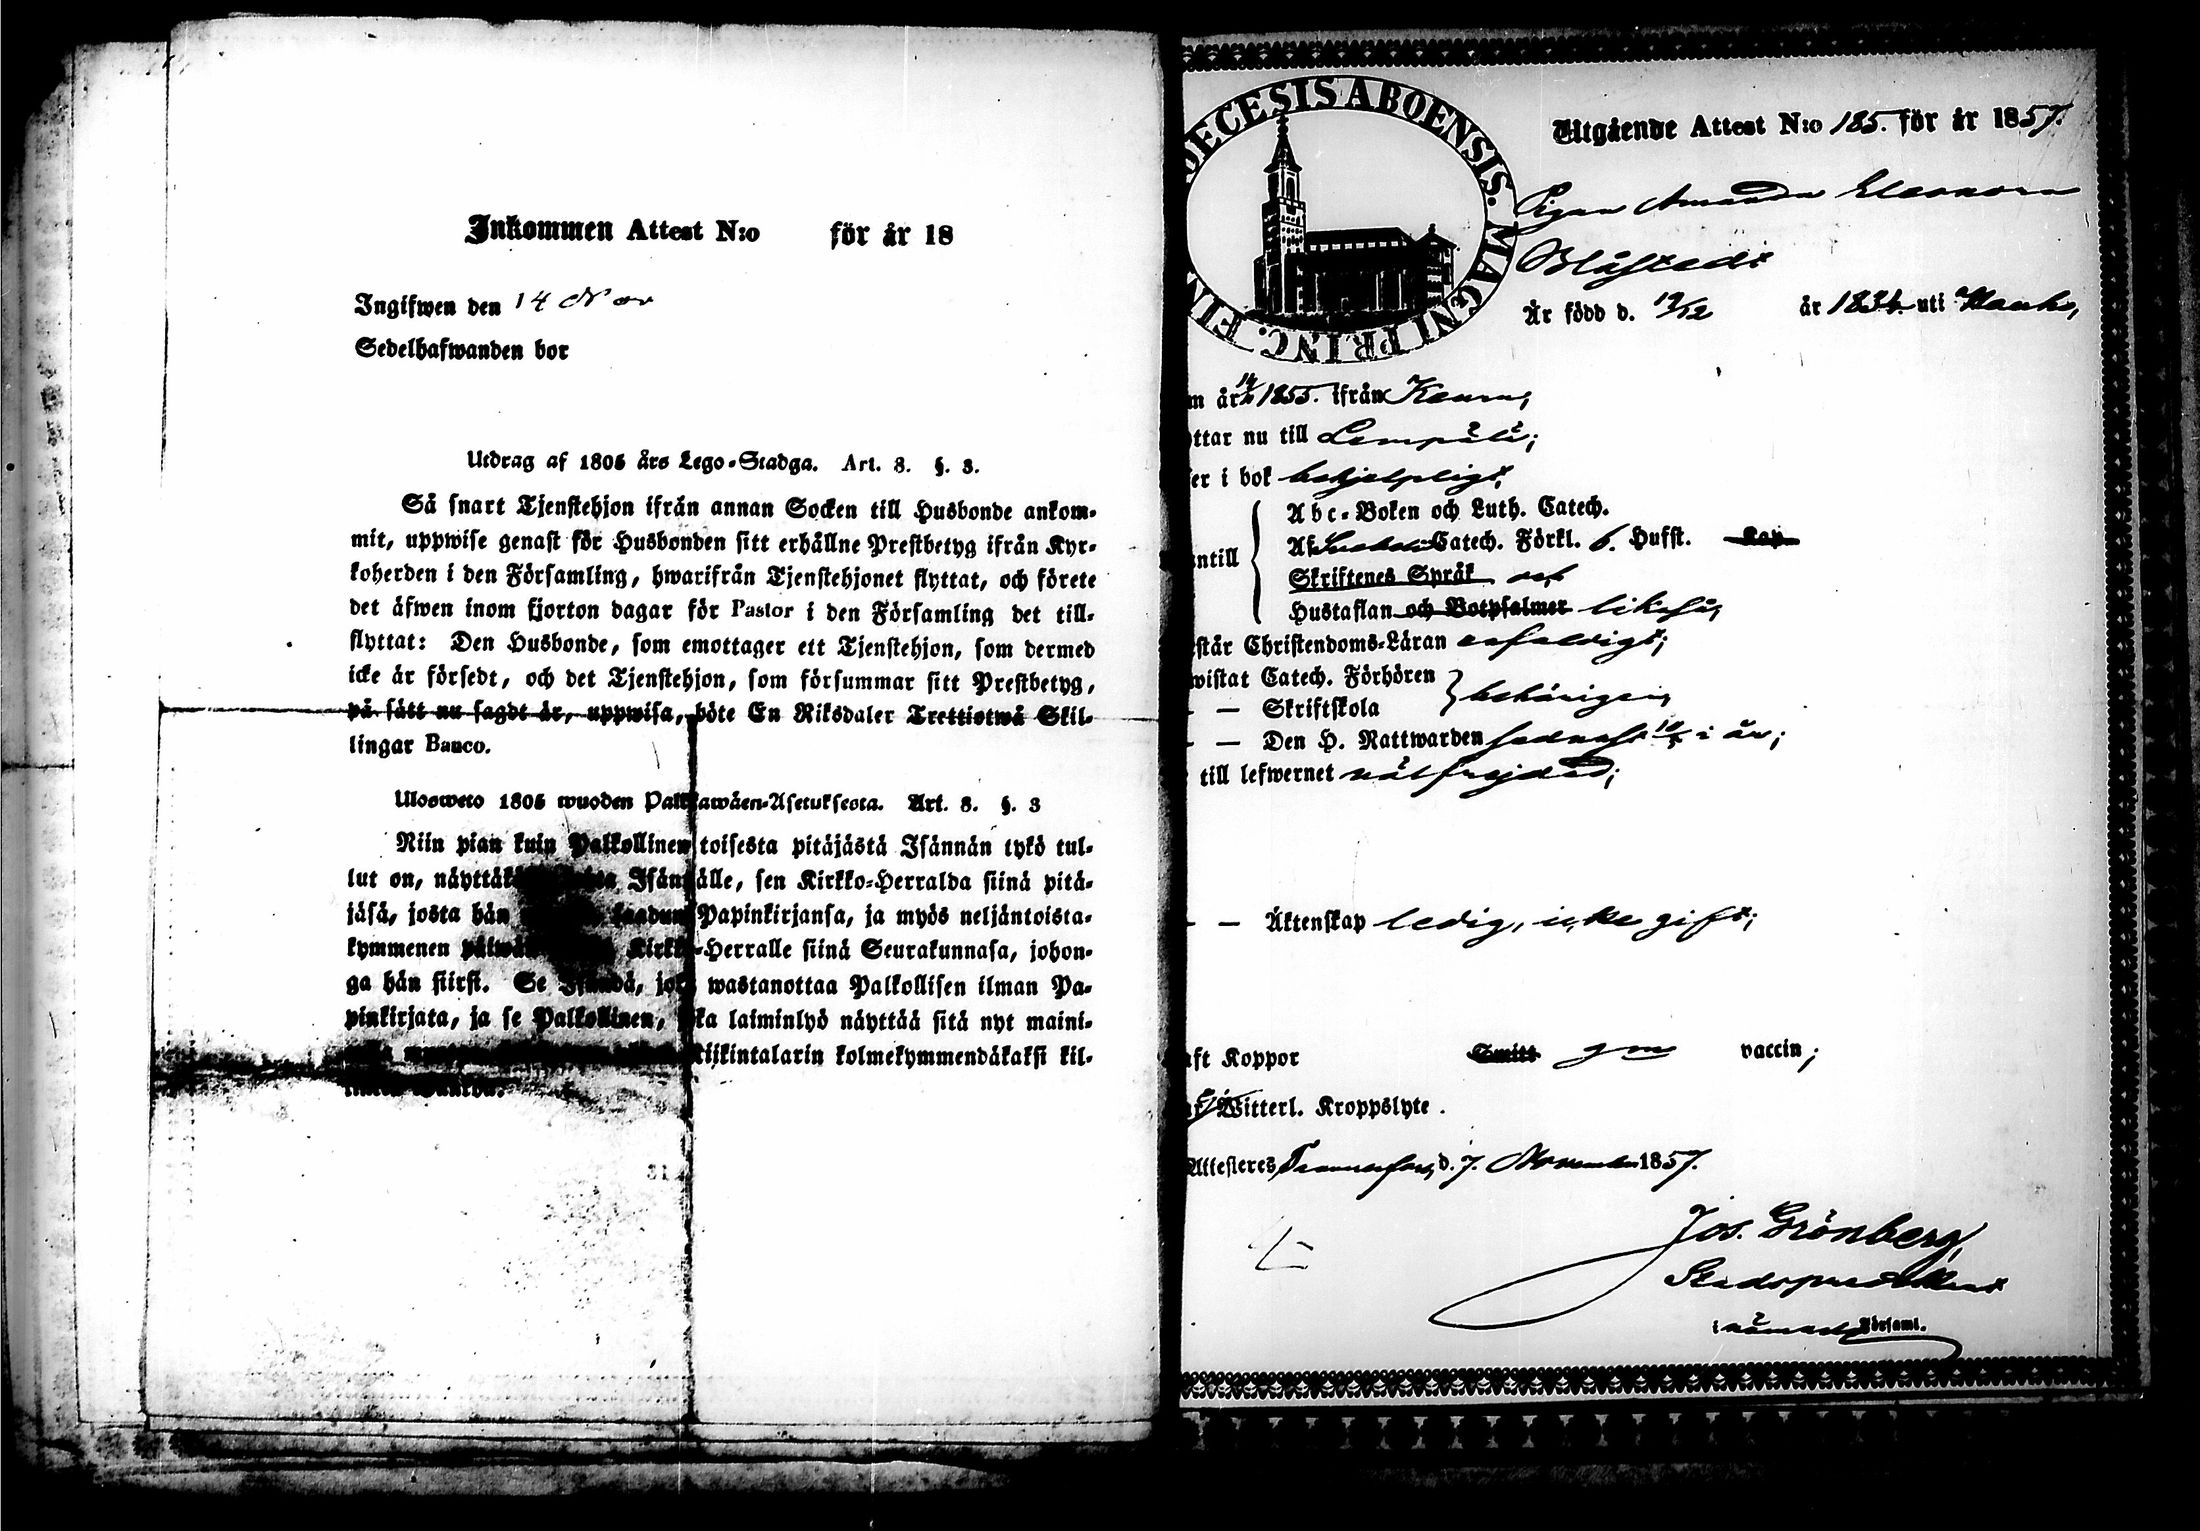 Inkommen Attest N:o för år 18
Ingifwen den 14 Nov
Sedelhafwanden bor
Utdrag af 1805 års Lego-Stadga. Art. 8. §. 3.
Så snart Tjenstehjon ifrån annan Socken till Husbonde ankom-
mit, uppwise genast för Husbonden sitt erhållne Prestbetyg ifrån Kyr-
koherden i den Församling, hwarifrån Tjenstehjonet flyttat, och förete
det äfwen inom fjorton dagar för Pastor i den Församling det till-
flyttat: Den Husbonde, som emottager ett Tjenstehjon, som dermed
icke är försedt, och det Tjenstehjon, som försummar sitt Prestbetyg,
på sätt nu sagdt är, uppwisa, böte En Riksdaler Trettiotwå Skil-
lingar Banco.
Ulosweto 1805 wuoden Palkkawäen-Asetuksesta. Art. 8. §. 3
Niin pian kuin Palkollinen toisesta pitäjästä Isännän tykö tul-
lut on, Isännälle, sen Kirkko-Herralda siinä pitä-
jäsä, josta hän saadun Papinkirjansa, ja myös neljäntoista-
kymmenen Kirkko-Herralle siinä Seurakunnasa, johon-
ga hän siirst. Se Isändä, joka wastanottaa Palkollisen ilman Pa-
pinkirjata, ja se Palkollinen, joka laiminlyö näyttää sitä nyt maini-
Riikintalarin kolmekymmendäkaksi kil-
31
DIOECESIS ABOENSIS. MAGNI PRINC. FIN
Utgående Attest N:o 185. för år 1857.
Pigan Amanda Eleonora
Blåstedt
Är född d. 19/12 år 1834. uti
m år 1855. ifrån
ttar nu till Lempälä;
er i bok behjelpligt,
Abc-Boken och Luth. Catech.
Af Catech. Förkl. 6. Hufst. Kap
antill Skriftenes Språk och
Hustaflan och Botpsalmer likaså,
står Christendoms-Läran enfaldigt;
wistat Catech. Förhören
behörigen,
— — Skriftskola
— — Den H. Nattwarden sednast i år;
till lefwernet wälfrejdad;
— — Äktenskap ledig, icke gift;
aft Koppor Smitt gm vaccin;
Witterl. Kroppslyte.
Attesteres Tammerfors, d. 7. November 1857.
Jos. Grönberg,
Stadspredikant
i nämnde Församl.